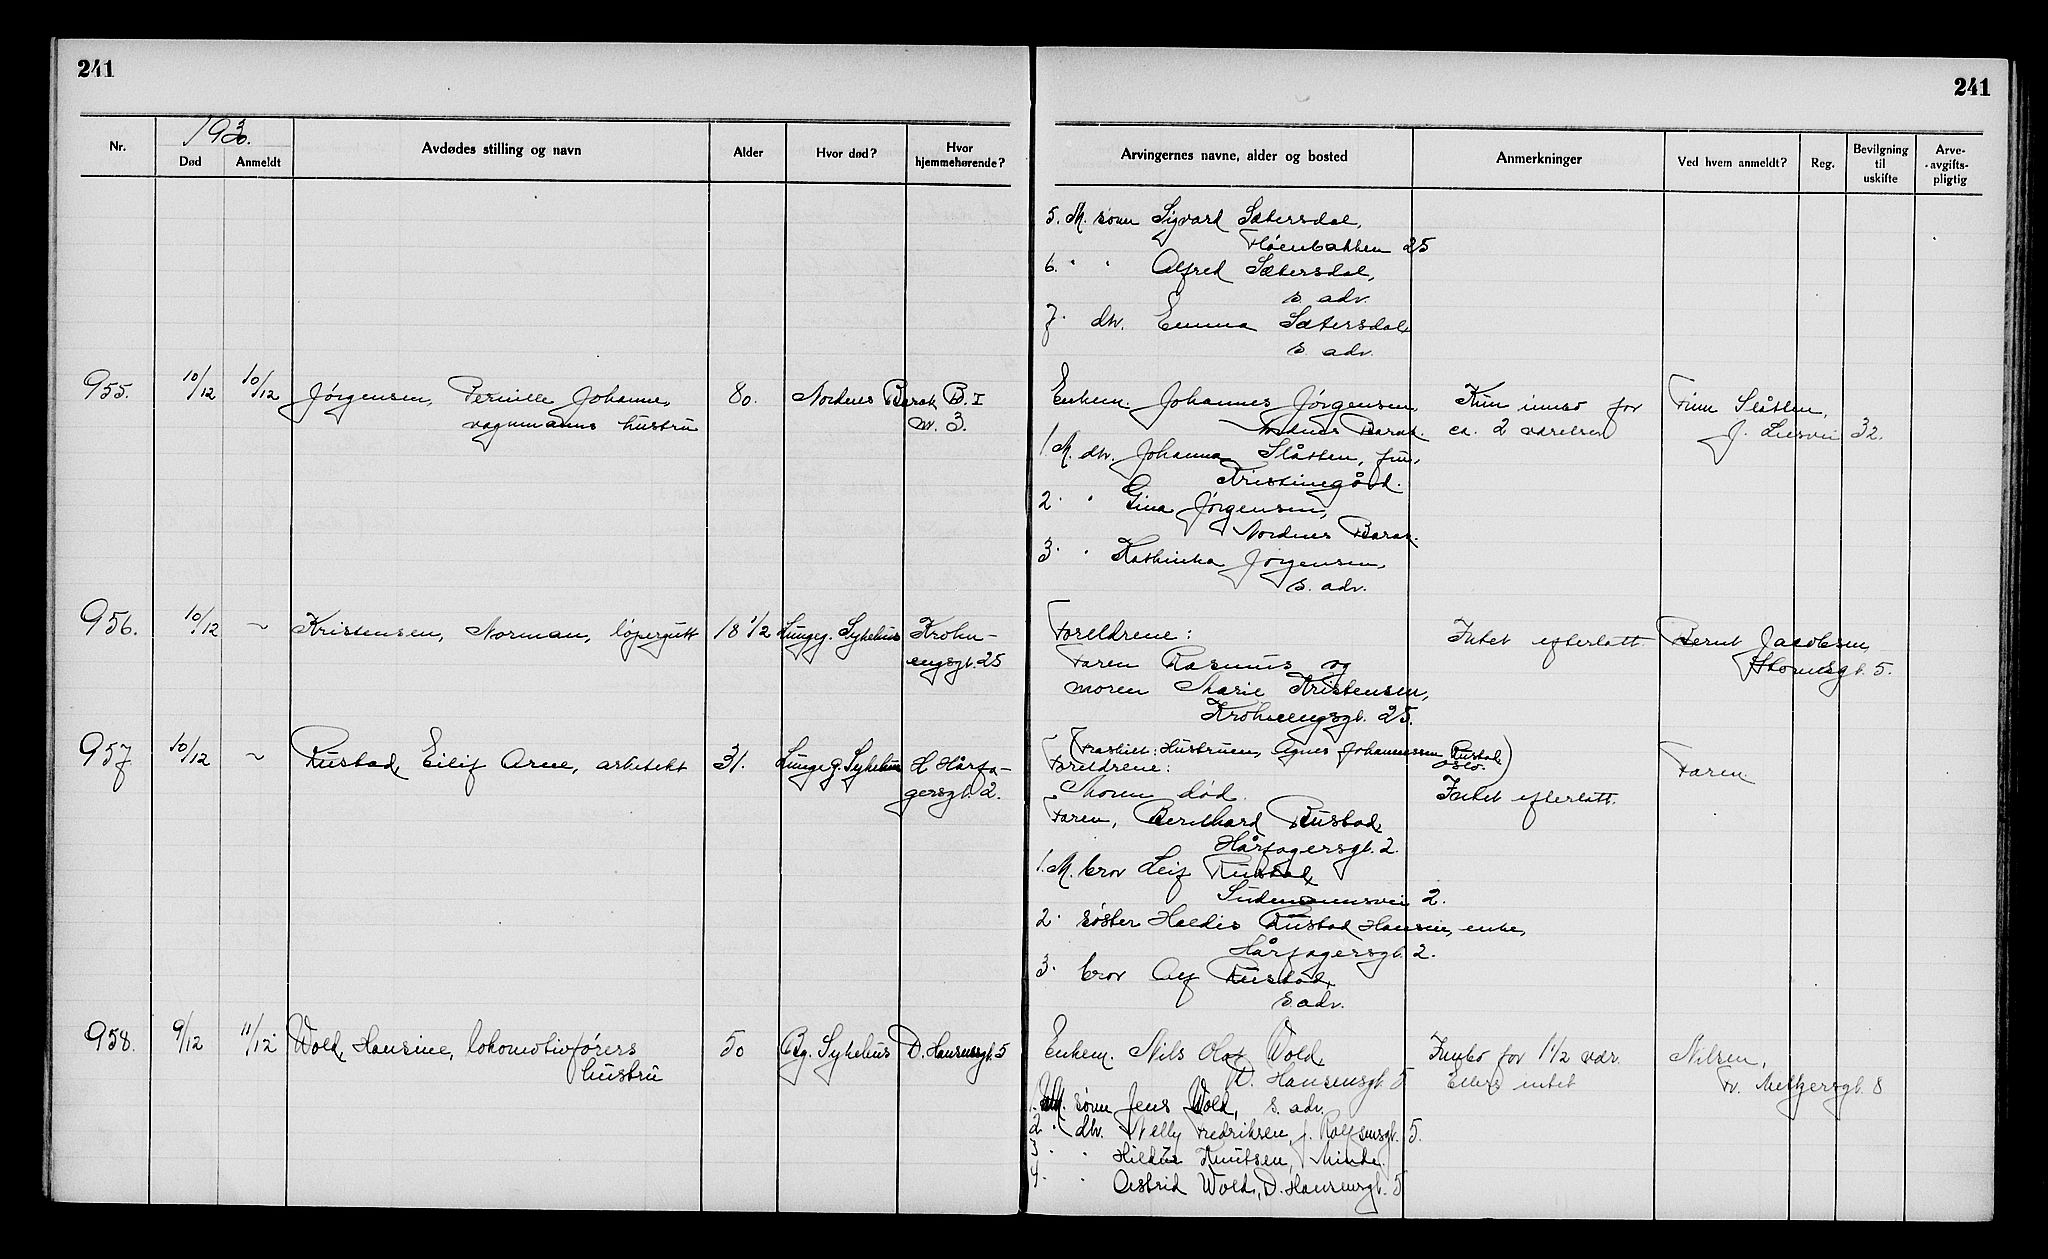 241
241
Nr.
193.
Død
Anmeldt
Avdødes stilling og navn
Alder
Hvor død?
Hvor hjemmehørende?
Arvingernes navne, alder og bosted
Anmerkninger
Ved hvem anmeldt?
Reg.
Bevilgning til uskifte
Arve-avgifts-pligtig
5. M. sønn Sigvard Sætersdal,
Fløenbakken 25
6. " " Alfred Sætersdal,
s. adr.
7. dtr. Emma Sætersdal,
s. adr.
955. 10/12 10/12 Jørgensen, Pernille Johanne, 80. Nordnes Barak B. I
vognmanns hustru nr. 3.
Enkem. Johannes Jørgensen Kun innbo for Finn Slåtten,
Nordnes Barak. ca. 2 værelser J. Liesvei 32.
1. M. dtr. Johanna Slåtten, fru,
Kristinegård.
2. " Gina Jørgensen,
Nordnes Barak.
3. " Kathinka Jørgensen,
s. adr.
956. 10/12 ~ Kristensen, Norman, løpergutt 18 1/2 Lungeg. Sykehus Krohn-
engsgt. 25
Foreldrene: Intet efterlatt. Bernt Jacobsen,
Faren Rasmus og gt. 5.
moren Marie Kristensen,
Krohnengsgt. 25.
957 10/12 ~ Rustad, Eilif Arne, arkitekt 31. Lungeg. Sykehus H. Hårfa-
gersgt. 2.
(Fraskilt: Hustruen, Agnes Johannessen Rustad
Oslo.)
Foreldrene: Faren.
Moren død. Intet efterlatt.
Faren, Bernhard Rustad,
Hårfagersgt. 2.
1. M. bror Leif Rustad,
2.
2. søster Haldis Rustad Hansen, enke,
Hårfagersgt. 2.
3. bror Alf Rustad,
s. adr.
958. 9/12 11/12 Wold, Hansine, lokomotivførers 50 Bg. Sykehus D. Hansensgt. 5
hustru
Enkem. Nils Olaf Wold, Innbo for 1 1/2 vær. Nilsen,
D. Hansensgt. 5 Ellers intet Fr. Meltzersgt. 8
1. M. sønn Jens Wold, s. adr.
2. " dtr. Nelly Fredriksen, J. Rolfsensgt. 5.
3. " Hildur Knutsen, Minde.
4. " Astrid Wold, D. Hansensgt. 5